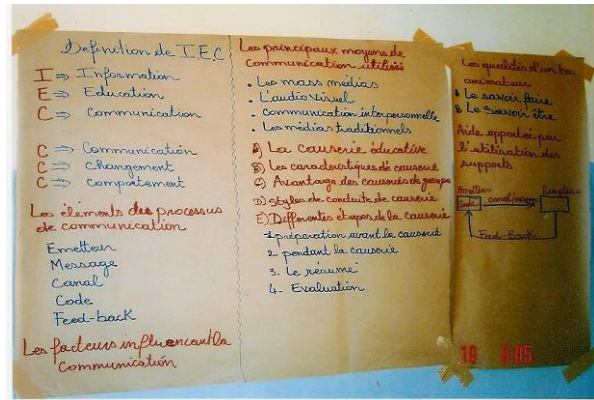 Definition de I.E.C
I ⇒ Information
E ⇒ Education
C ⇒ Communication
C ⇒ Communication
C ⇒ Changement
C ⇒ Comportement
Les élements des processus
de communication
Emetteur
Message
Canal
Code
Feed-back
Les facteurs influencant la
Communication
Les principaux moyens de
Communication utilisés
. Les mass médias
. L'audio visuel
. Communication interpersonnelle
. Les médias traditionnels
A) La causerie éducative
B) Les caracteristiques de causerie
C) Avantage des causeries de groupe
D) Styles de conduite de causerie
E) Differentes étapes de la causerie
1. préparation avant la causerie
2. pendant la causerie
3. Le résumé
4- Evaluation
Les qualités d'un bon
animateur
Le savoir faire
Le Savoir être
Aide apportée par
l'utilisation des
supports
Code
Feed-Back